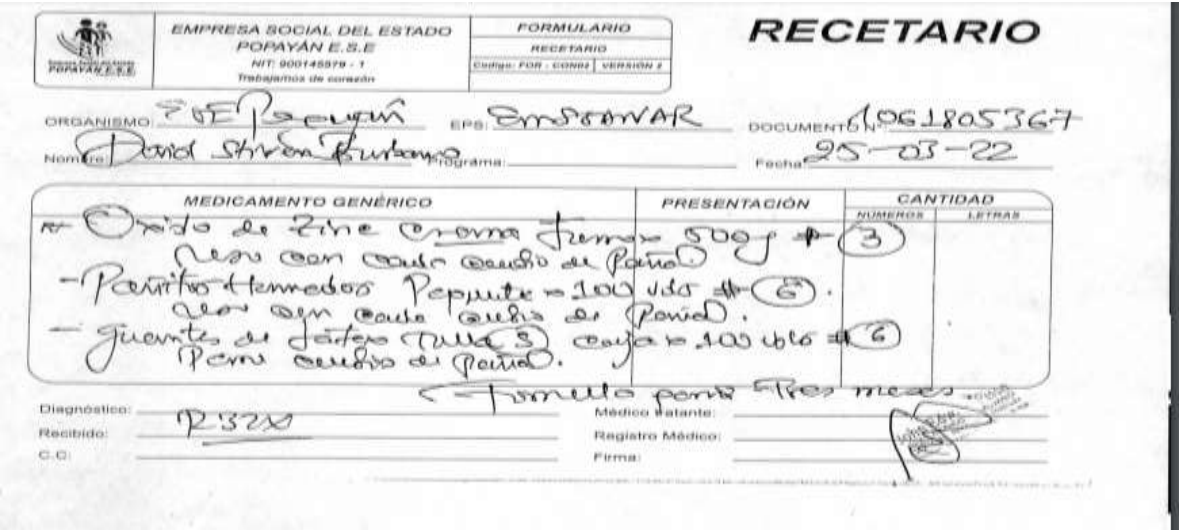 POPAYÁN E.S.E.
EMPRESA SOCIAL DEL ESTADO
POPAYÁN E.S.E
NIT: 900145579 - 1
Trabajamos de corazón
FORMULARIO
RECETARIO
VERSIÓN
RECETARIO
ORGANISMO: ESE Popayán EPS: DOCUMENTO Nº: 1061805367
Nombre: David Stiven Burbano Programa: Fecha: 25-03-22
MEDICAMENTO GENÉRICO PRESENTACIÓN CANTIDAD
NÚMEROS LETRAS
Oxido de Zinc crema 500g # 3
Uso con cada cambio de Pañal.
- Pañitos Humedos Paquete x 100 uds # 6.
Uso con cada cambio de Pañal.
- Guantes de látex (Talla S) caja x 100 # 6
Para cambio de Pañal.
Formula para Tres meses
Diagnóstico: R32X Médico tratante:
Recibido: Registro Médico:
C.C: Firma: